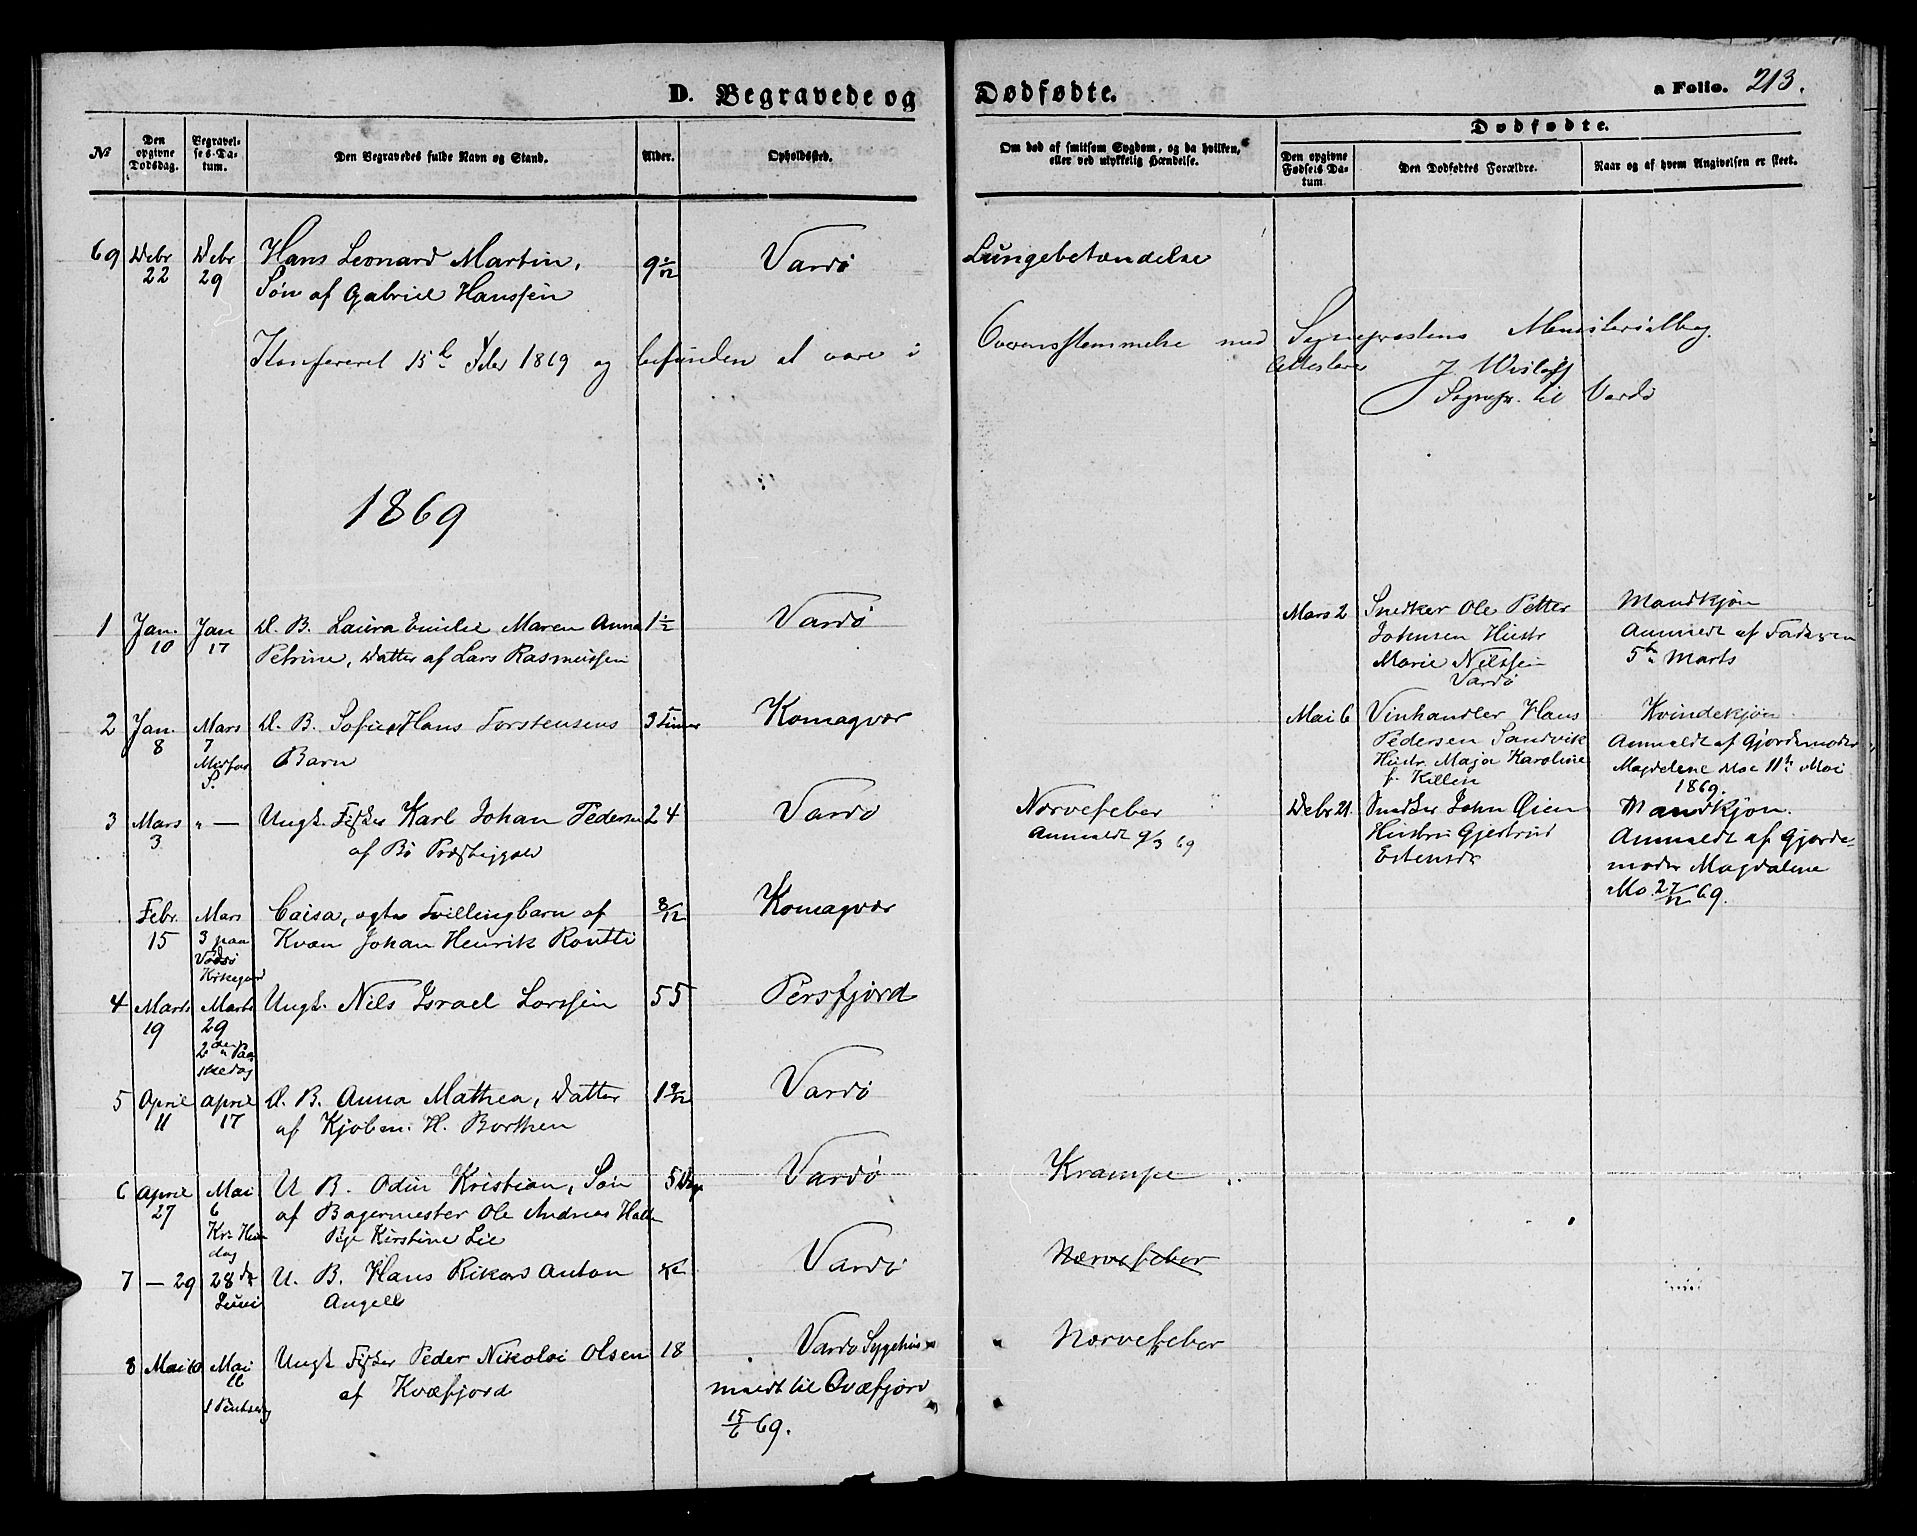 D. Begravede og Dødfødte.
a Folio. 213.
No
Den opgivne Dødsdag.
Begravelses-Datum.
Den Begravedes fulde Navn og Stand.
Alder.
Opholdssted.
Om død af smitsom Sygdom, og da hvilken, eller ved ulykkelig Hændelse.
Dødfødte.
Den opgivne Fødsels Datum
Den Dødfødtes Forældre.
Naar og af hvem Angivelsen er skeet.
69 Debr 22 Debr 29 Hans Leonard Martin, 9/12 Vardö Lungebetændelse
Søn af Gabriel Hanssen
Konfereret 15de Febr 1869 og befunden at være i Overensstemmelse med Sogneprestens Ministerialbog.
Attesterer J Wisløff
Sognepr. til Vardö
1869
1 Jan. 10 Jan 17 D. B. Laura Emilie Maren Anna 1 1/2 Vardö
Petrine, Datter af Lars Rasmussen
Mars 2 Snedker Ole Petter
Johnsen Hustr
Marie Nilssen
Vardö
Mandkjøn
Anmeldt af Faderen
5te Marts
2 Jan. 8 Mars 7 Midfas S. D. B. Sofie Hans Torstensens 3 Timer Komagvær
Barn
Mai 6 Vinhandler Hans
Pedersen Sandvik
Hustr. Maja Karoline
f. Killen
Kvindekjøn
Anmeldt af Gjordemoder
Magdelene Moe 11te Mai
1869.
3 Mars 3 " — Ungk. Fisker Karl Johan Pedersen 24 Vardö Nervefeber
af Bö Præstegjæld
Anmeldt 9/3 69
Debr 21. Snedker John Øien
Hustru Gjertrud
Estensdr
Mandkjøn.
Anmeldt af Gjorde-
moder Magdalene
Mo. 27/12 69.
Febr. 15 Mars 3 paa Vadsö Kirkegard Caisa, ægte Tvillingbarn af 8/12 Komagvær
Kvæn Johan Henrik Routti
4 Marts 19 Marts 29 2den Paaskedag Ungk. Nils Israel Larssen 55 Persfjord
5 April 11 April 17 D. B. Anna Mathea, Datter 1 9/12 Vardö
af Kjøbm. H. Borthen
6 April 27 Mai 6 Kr. Him dag U B. Odin Kristian, Søn 5 Dage Vardö Krampe
af Bagermester Ole Andreas
Pige Kirstine Lie
7 — 29 28de Juni U. B. Hans Rikard Anton Vardö Nervefeber
Angell
8 Mai 10 Mai 16 1 Pintsedag Ungk Fisker Peder Nikolai Olsen 18 Vardö Sygehus Nervefeber
af Kvæfjord
meldt til Qvæfjord
15/6 69.